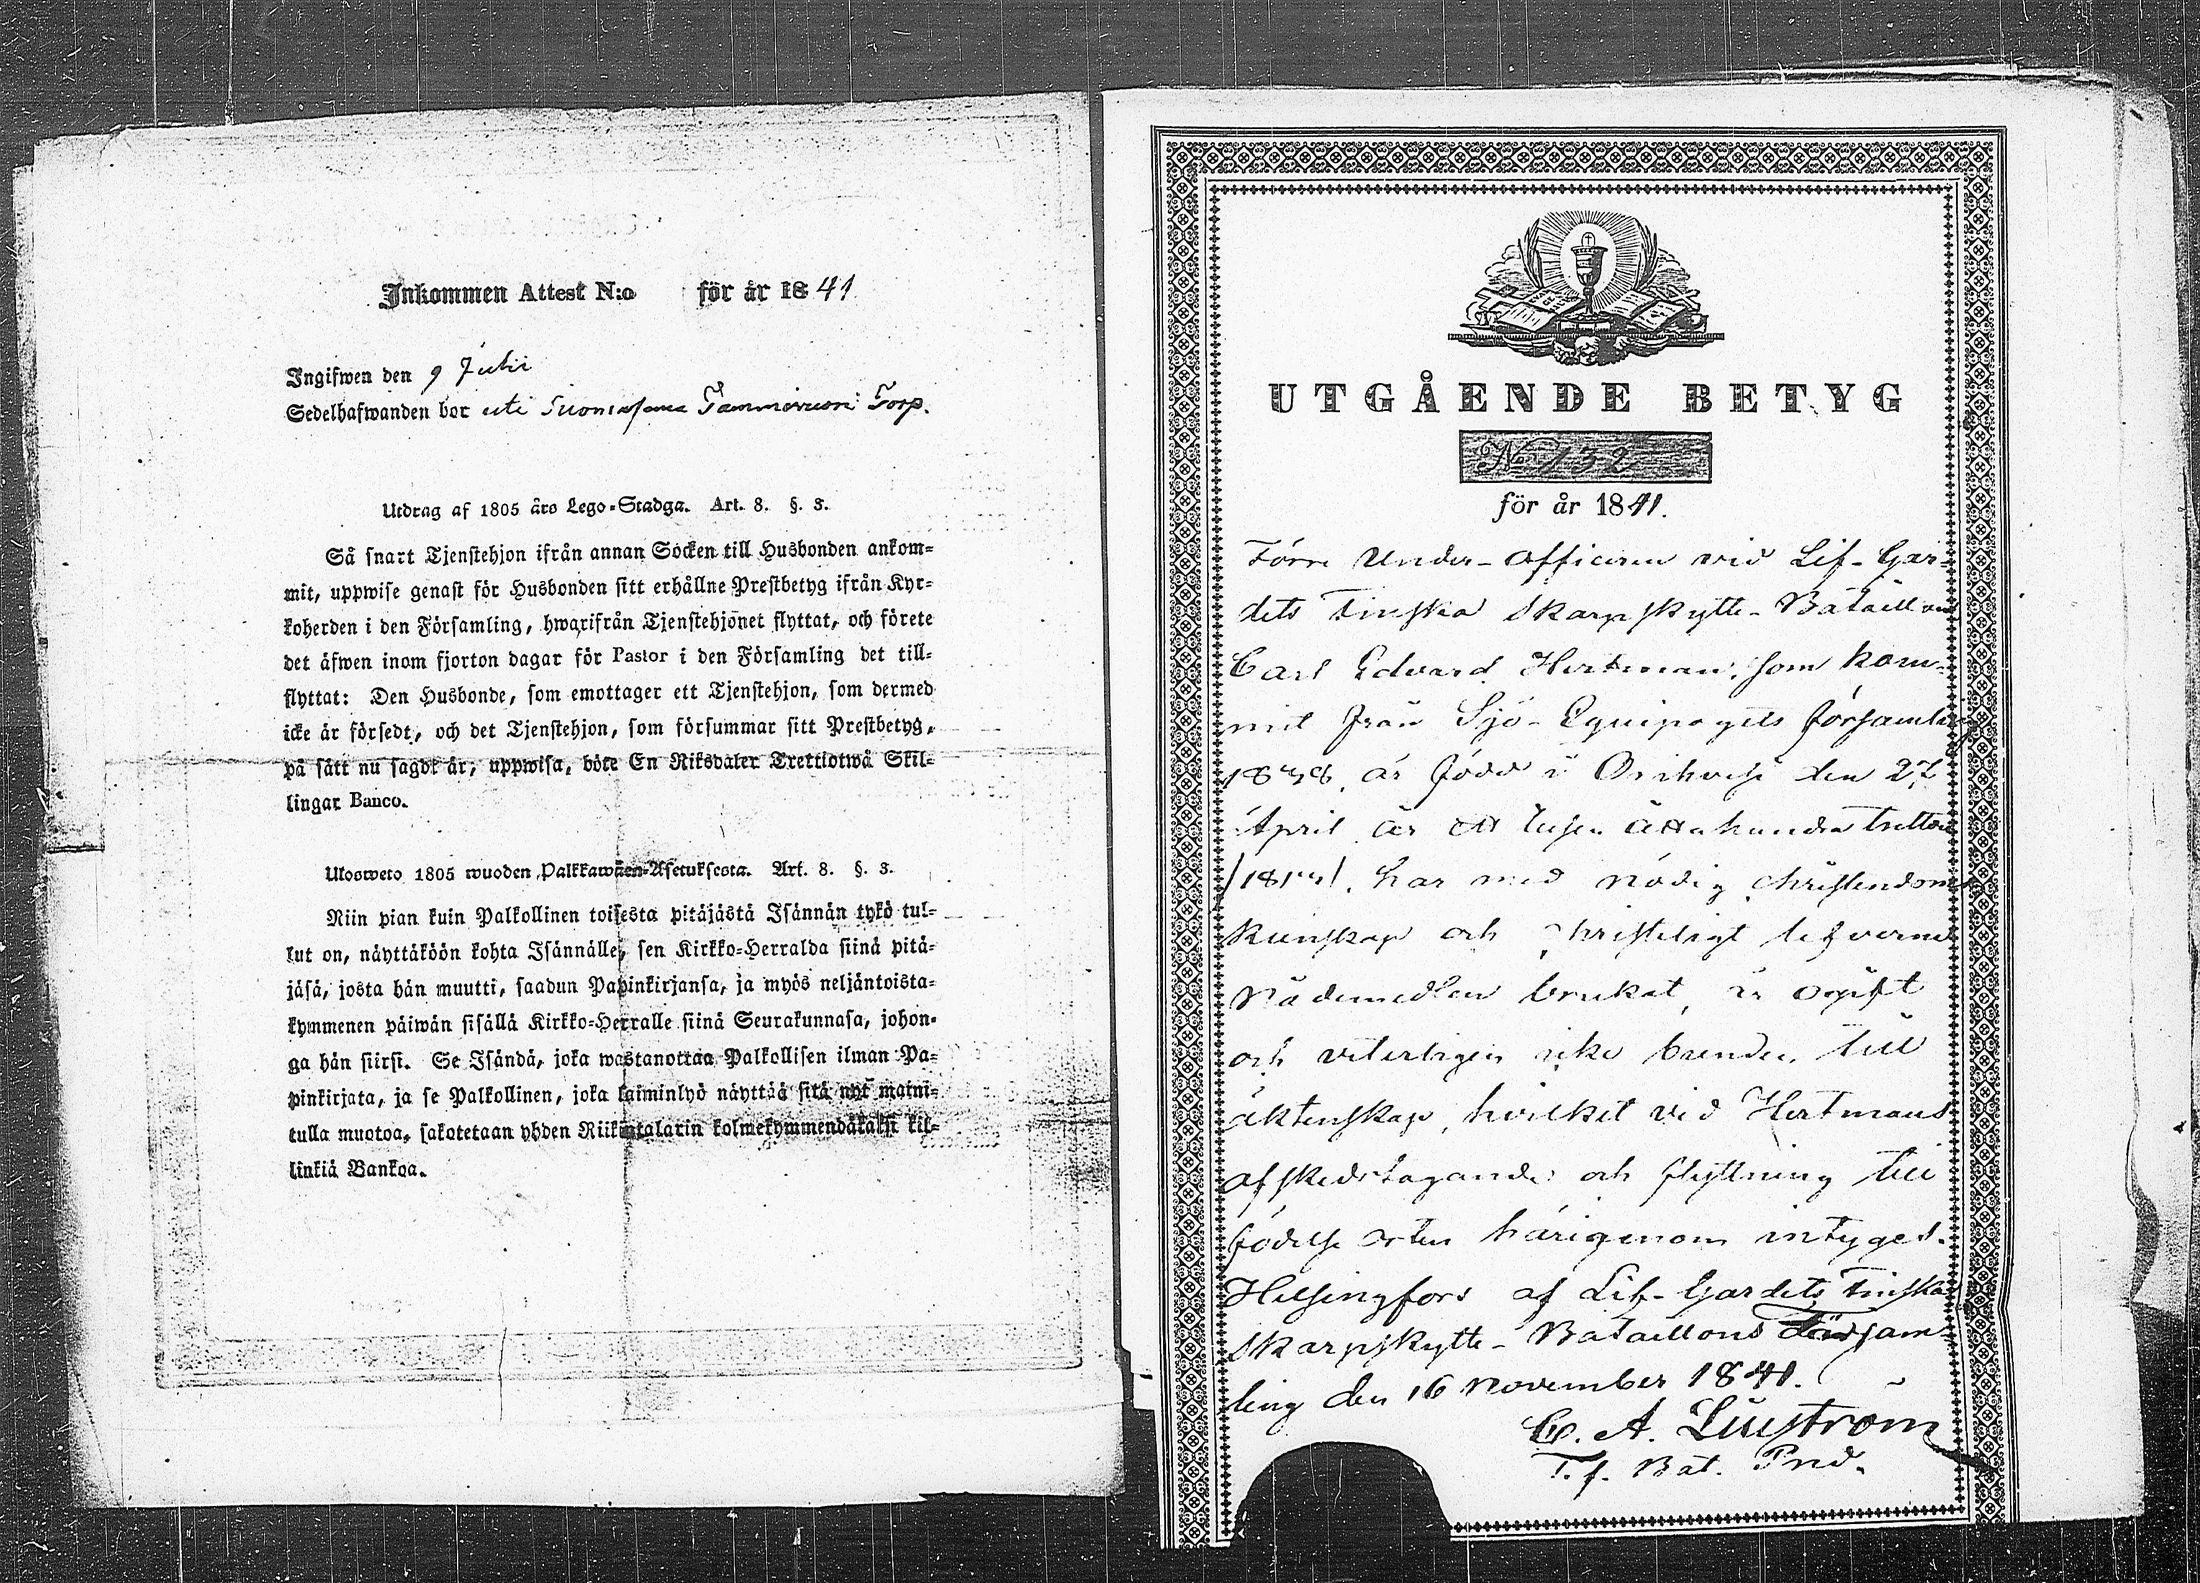 Inkommen Attest N:o för år 1841
Ingifwen den 9 Julii
Sedelhafwanden bor uti Torp.
Utdrag af 1805 års Lego-Stadga. Art. 8. §. 3.
Så snart Tjenstehjon ifrån annan Socken till Husbonden ankom-
mit, uppwise genast för Husbonden sitt erhållne Prestbetyg ifrån Kyr-
koherden i den Församling, hwarifrån Tjenstehjonet flyttat, och förete
det äfwen inom fjorton dagar för Pastor i den Församling det till-
flyttat: Den Husbonde, som emottager ett Tjenstehjon, som dermed
icke är försedt, och det Tjenstehjon, som försummar sitt Prestbetyg,
på sätt nu sagdt är, uppwisa, böte En Riksdaler Trettiotwå Skil-
lingar Banco.
Ulosweto 1805 wuoden Palkkawäen-Asetuksesta. Art. 8. §. 3.
Niin pian kuin Palkollinen toisesta pitäjästä Isännän tykö tul-
lut on, näyttäköön kohta Isännälle, sen Kirkko-Herralda siinä pitä-
jäsä, josta hän muutti, saadun Papinkirjansa, ja myös neljäntoista-
kymmenen päiwän sisällä Kirkko-Herralle siinä Seurakunnasa, johon-
ga hän siirsi. Se Isändä, joka wastanottaa Palkollisen ilman Pa-
pinkirjata, ja se Palkollinen, joka laiminlyö näyttää sitä nyt maini-
tulla muotoa, sakotetaan yhden Riikintalarin kolmekymmendäkaksi kil-
linkiä Bankoa.
UTGÅENDE BETYG
No 132
för år 1841.
Förre Under-Officeren vid Lif-Gar-
dets Finska Skarpskytte-Bataillon
Carl Edvard Hertman, som kom-
mit från Sjö-Equipagets församling
1838, är född i Orihvesi den 27
April år ett tusen åttahundra tretton
/1813/, har med nödig christendoms
kunskap och christeligt lefverne
nådemedlen brukat, är ogift
och veterligen icke bunden till
äktenskap, hvilket vid Hertmans
afskedstagande och flyttning till
födelse orten härigenom intygas.
Helsingfors af Lif-Gardets Finska
Skarpskytte-Bataillons Försam-
ling den 16 November 1841.
C. A. Liljström
T. f. Bat. Pred.